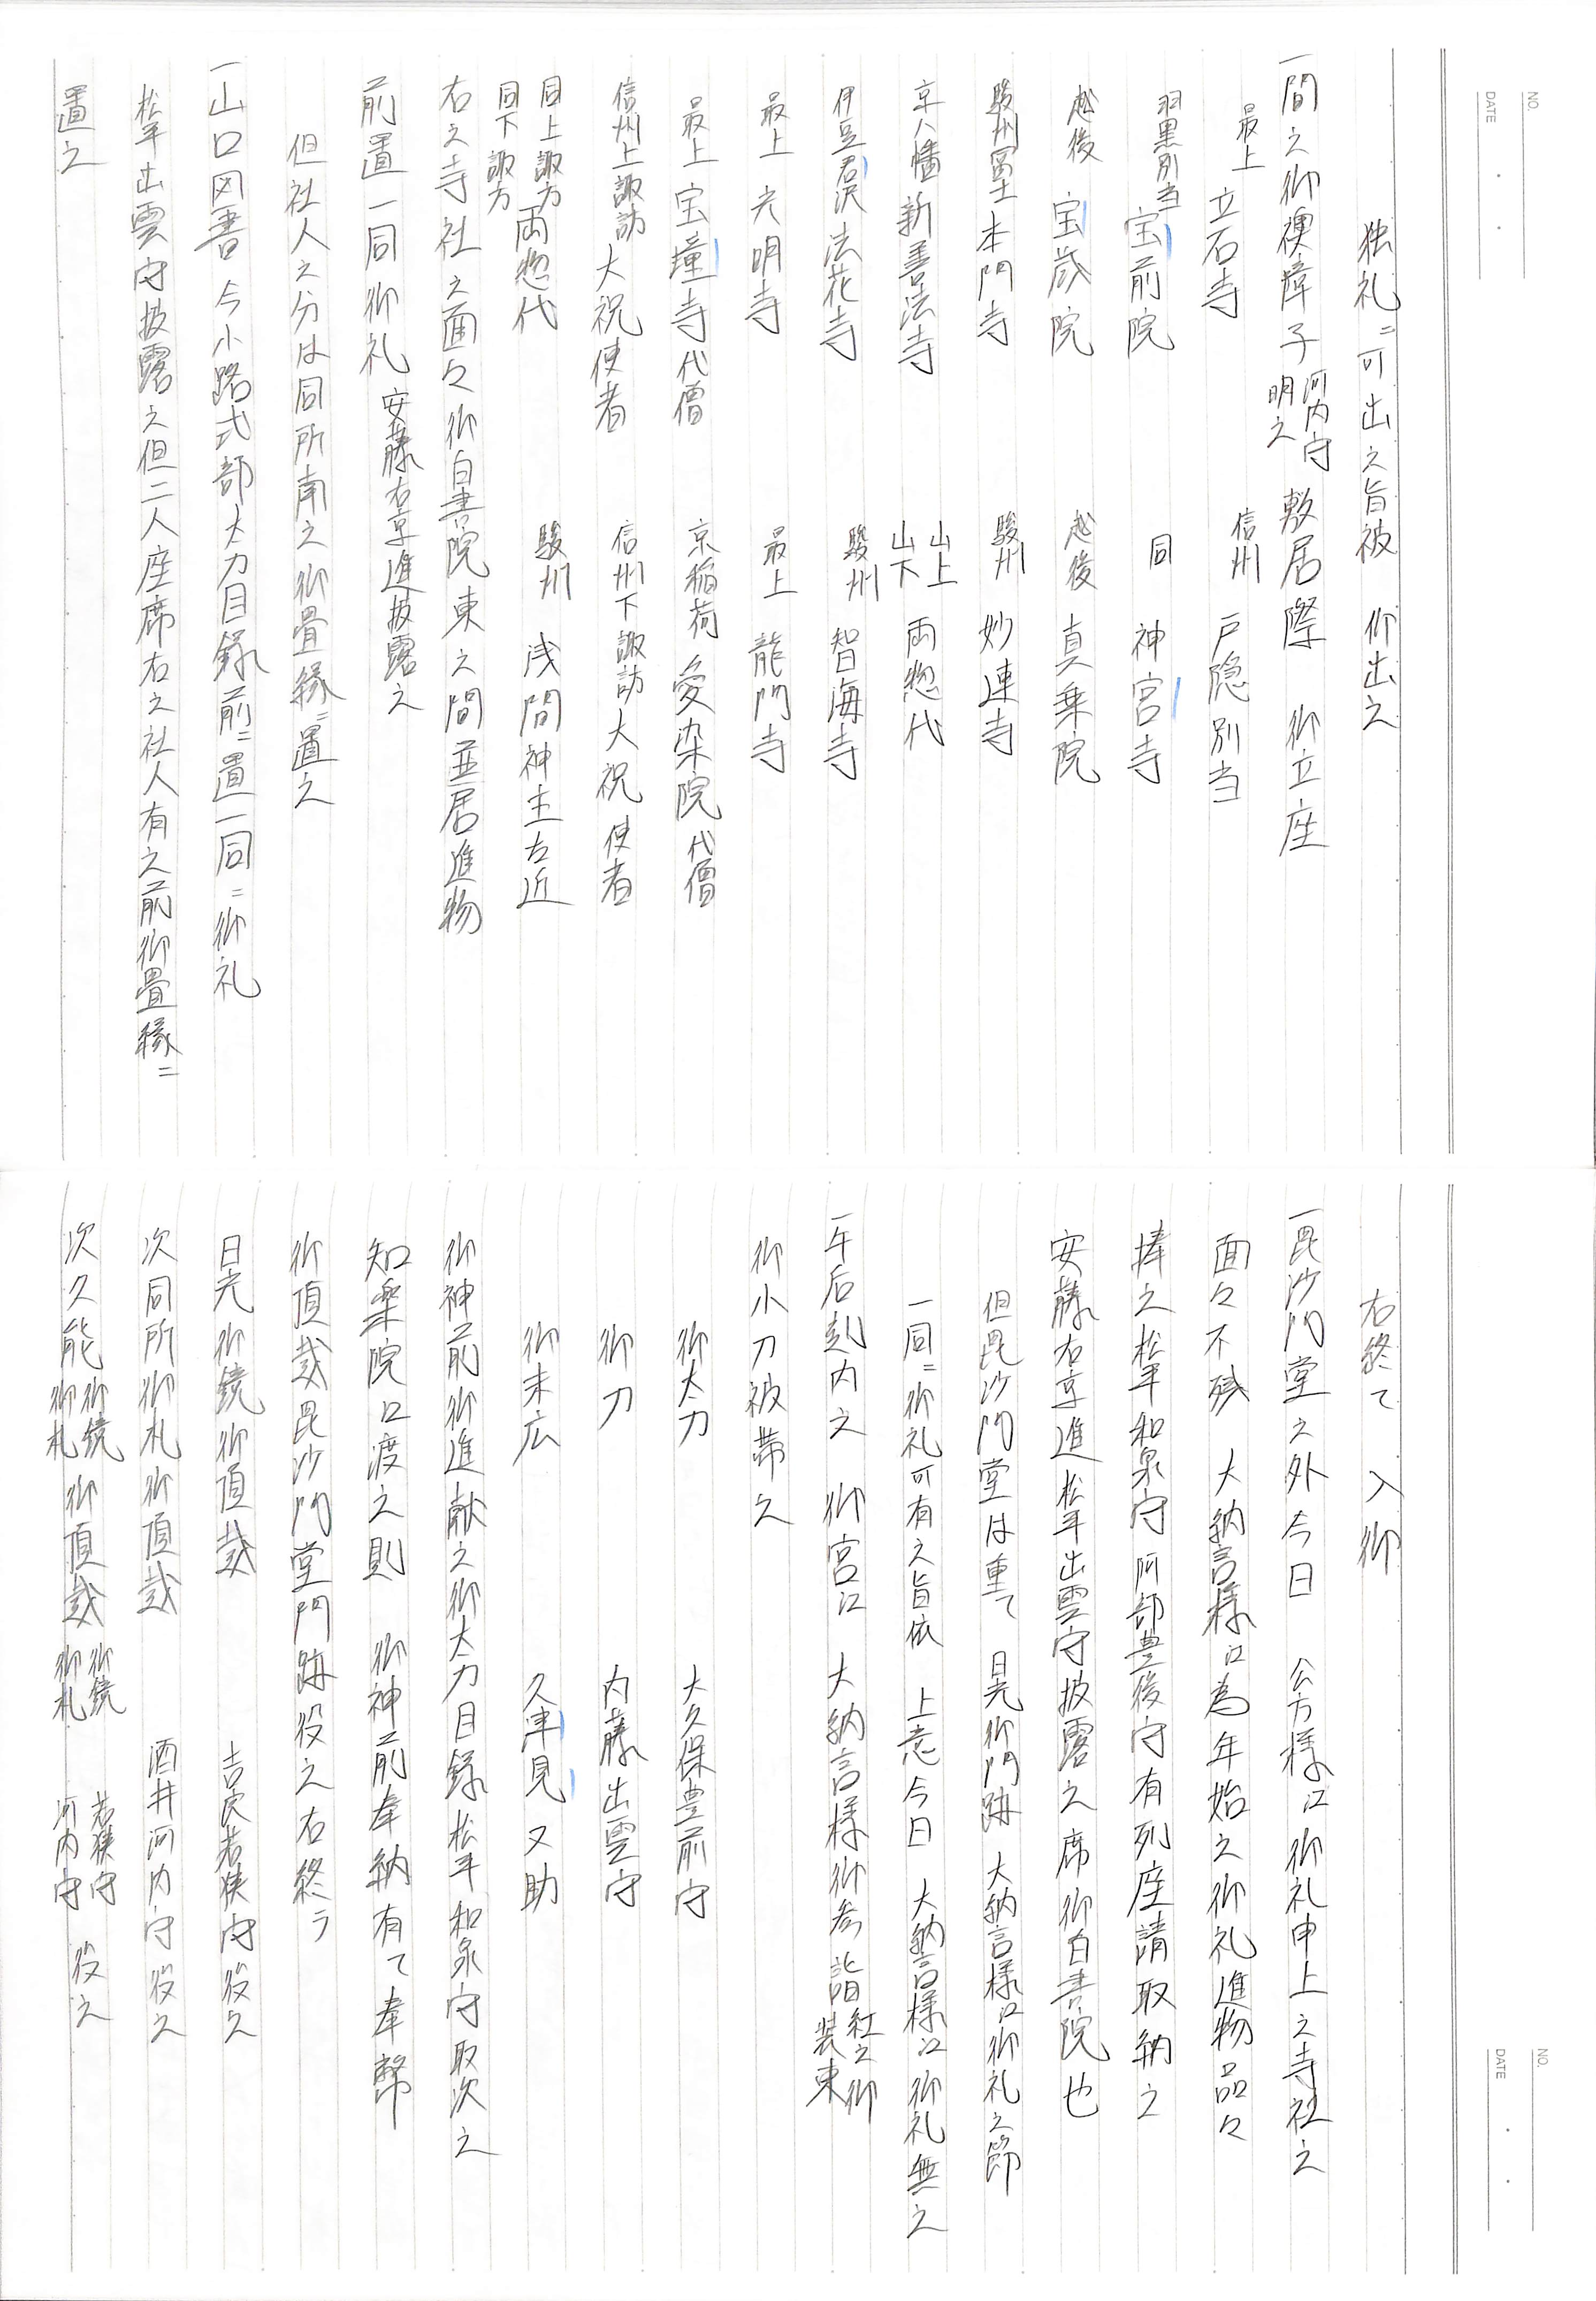 NO.
DATE
独礼ニ可出之旨被　仰出之
一間之御襖障子 河内守 明之 敷居際　御立座
最上　立石寺　　信州　戸隠別当
羽黒別当　宝前院　　同　神宮寺
越後　宝歳院　　越後　真乗院
駿州冨士　本門寺　　駿州　妙連寺
京八幡　新善法寺　　山上 山下　両惣代
伊豆君沢　法花寺　　駿州　智海寺
最上　光明寺　　最上　龍門寺
最上　宝幢寺　代僧　　京稲荷　愛染院　代僧
信州上諏訪　大祝　使者　　信州下諏訪　大祝　使者
同上諏方 同下諏方　両惣代　　駿州　浅間神主右近
右之寺社之面々御白書院東之間並居進物
前置一同御礼　安藤右京進披露之
但社人之分は同所南之御畳縁ニ置之
一山口図書　今小路式部太刀目録前ニ置一同ニ御礼
松平出雲守披露之但二人座席右之社人有之前御畳縁ニ
置之
NO.
DATE
右終て　入御
一毘沙門堂之外今日　公方様江御礼申上之寺社之
面々不残　大納言様江為年始之御礼進物品々
捧之松平和泉守　阿部豊後守有列座請取納之
安藤右京進松平出雲守披露之席御白書院也
但毘沙門堂は重て　日光御門跡　大納言様江御礼之節
一同ニ御礼可有之旨依　上意今日　大納言様江御礼無之
一午后刻内之　御宮江　大納言様御参詣 紅之御 装束
御小刀被帯之
御太刀　　大久保豊前守
御刀　　内藤出雲守
御末広　　久津見　又助
御神前御進献之御太刀目録松平和泉守取次之
知楽院江渡之則　御神前奉納有て奉幣
御頂戴毘沙門堂門跡役之右終ラ
日光御鏡御頂戴　　吉良若狭守役之
次同所御札御頂戴　　酒井河内守役之
次久能 御鏡 御札 御頂戴 御鏡 御札　若狭守 河内守　役之